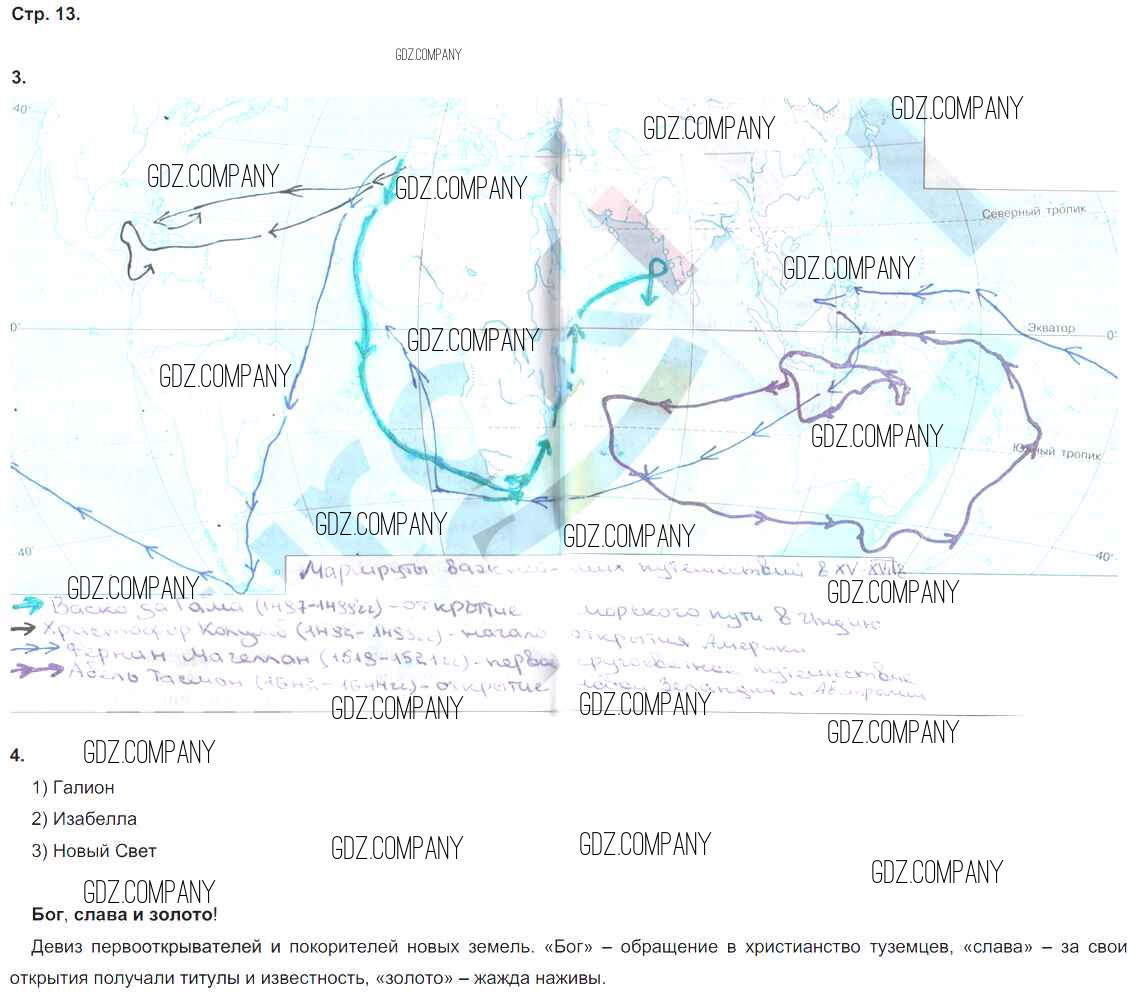 Стр. 13.
GDZ.COMPANY
3.
40°
GDZ.COMPANY
GDZ.COMPANY
GDZ.COMPANY
GDZ.COMPANY
Северный тропик
GDZ.COMPANY
0°
GDZ.COMPANY
Экватор
0°
GDZ.COMPANY
GDZ.COMPANY
Южный тропик
GDZ.COMPANY
GDZ.COMPANY
40°
40°
Маршруты путешествий в XV-XVII
GDZ.COMPANY
GDZ.COMPANY
Васко да Гама - открытие морского пути в Индию
Христофор Колумб - начало открытия Америки
Фернан Магеллан (1519-1521 гг) - путешествие
Абель Тасман (1642-1644 гг) - открытие Зеландии и Австралии
GDZ.COMPANY
GDZ.COMPANY
GDZ.COMPANY
4.
GDZ.COMPANY
1) Галион
2) Изабелла
3) Новый Свет
GDZ.COMPANY
GDZ.COMPANY
GDZ.COMPANY
GDZ.COMPANY
Бог, слава и золото!
Девиз первооткрывателей и покорителей новых земель. «Бог» – обращение в христианство туземцев, «слава» – за свои
открытия получали титулы и известность, «золото» – жажда наживы.